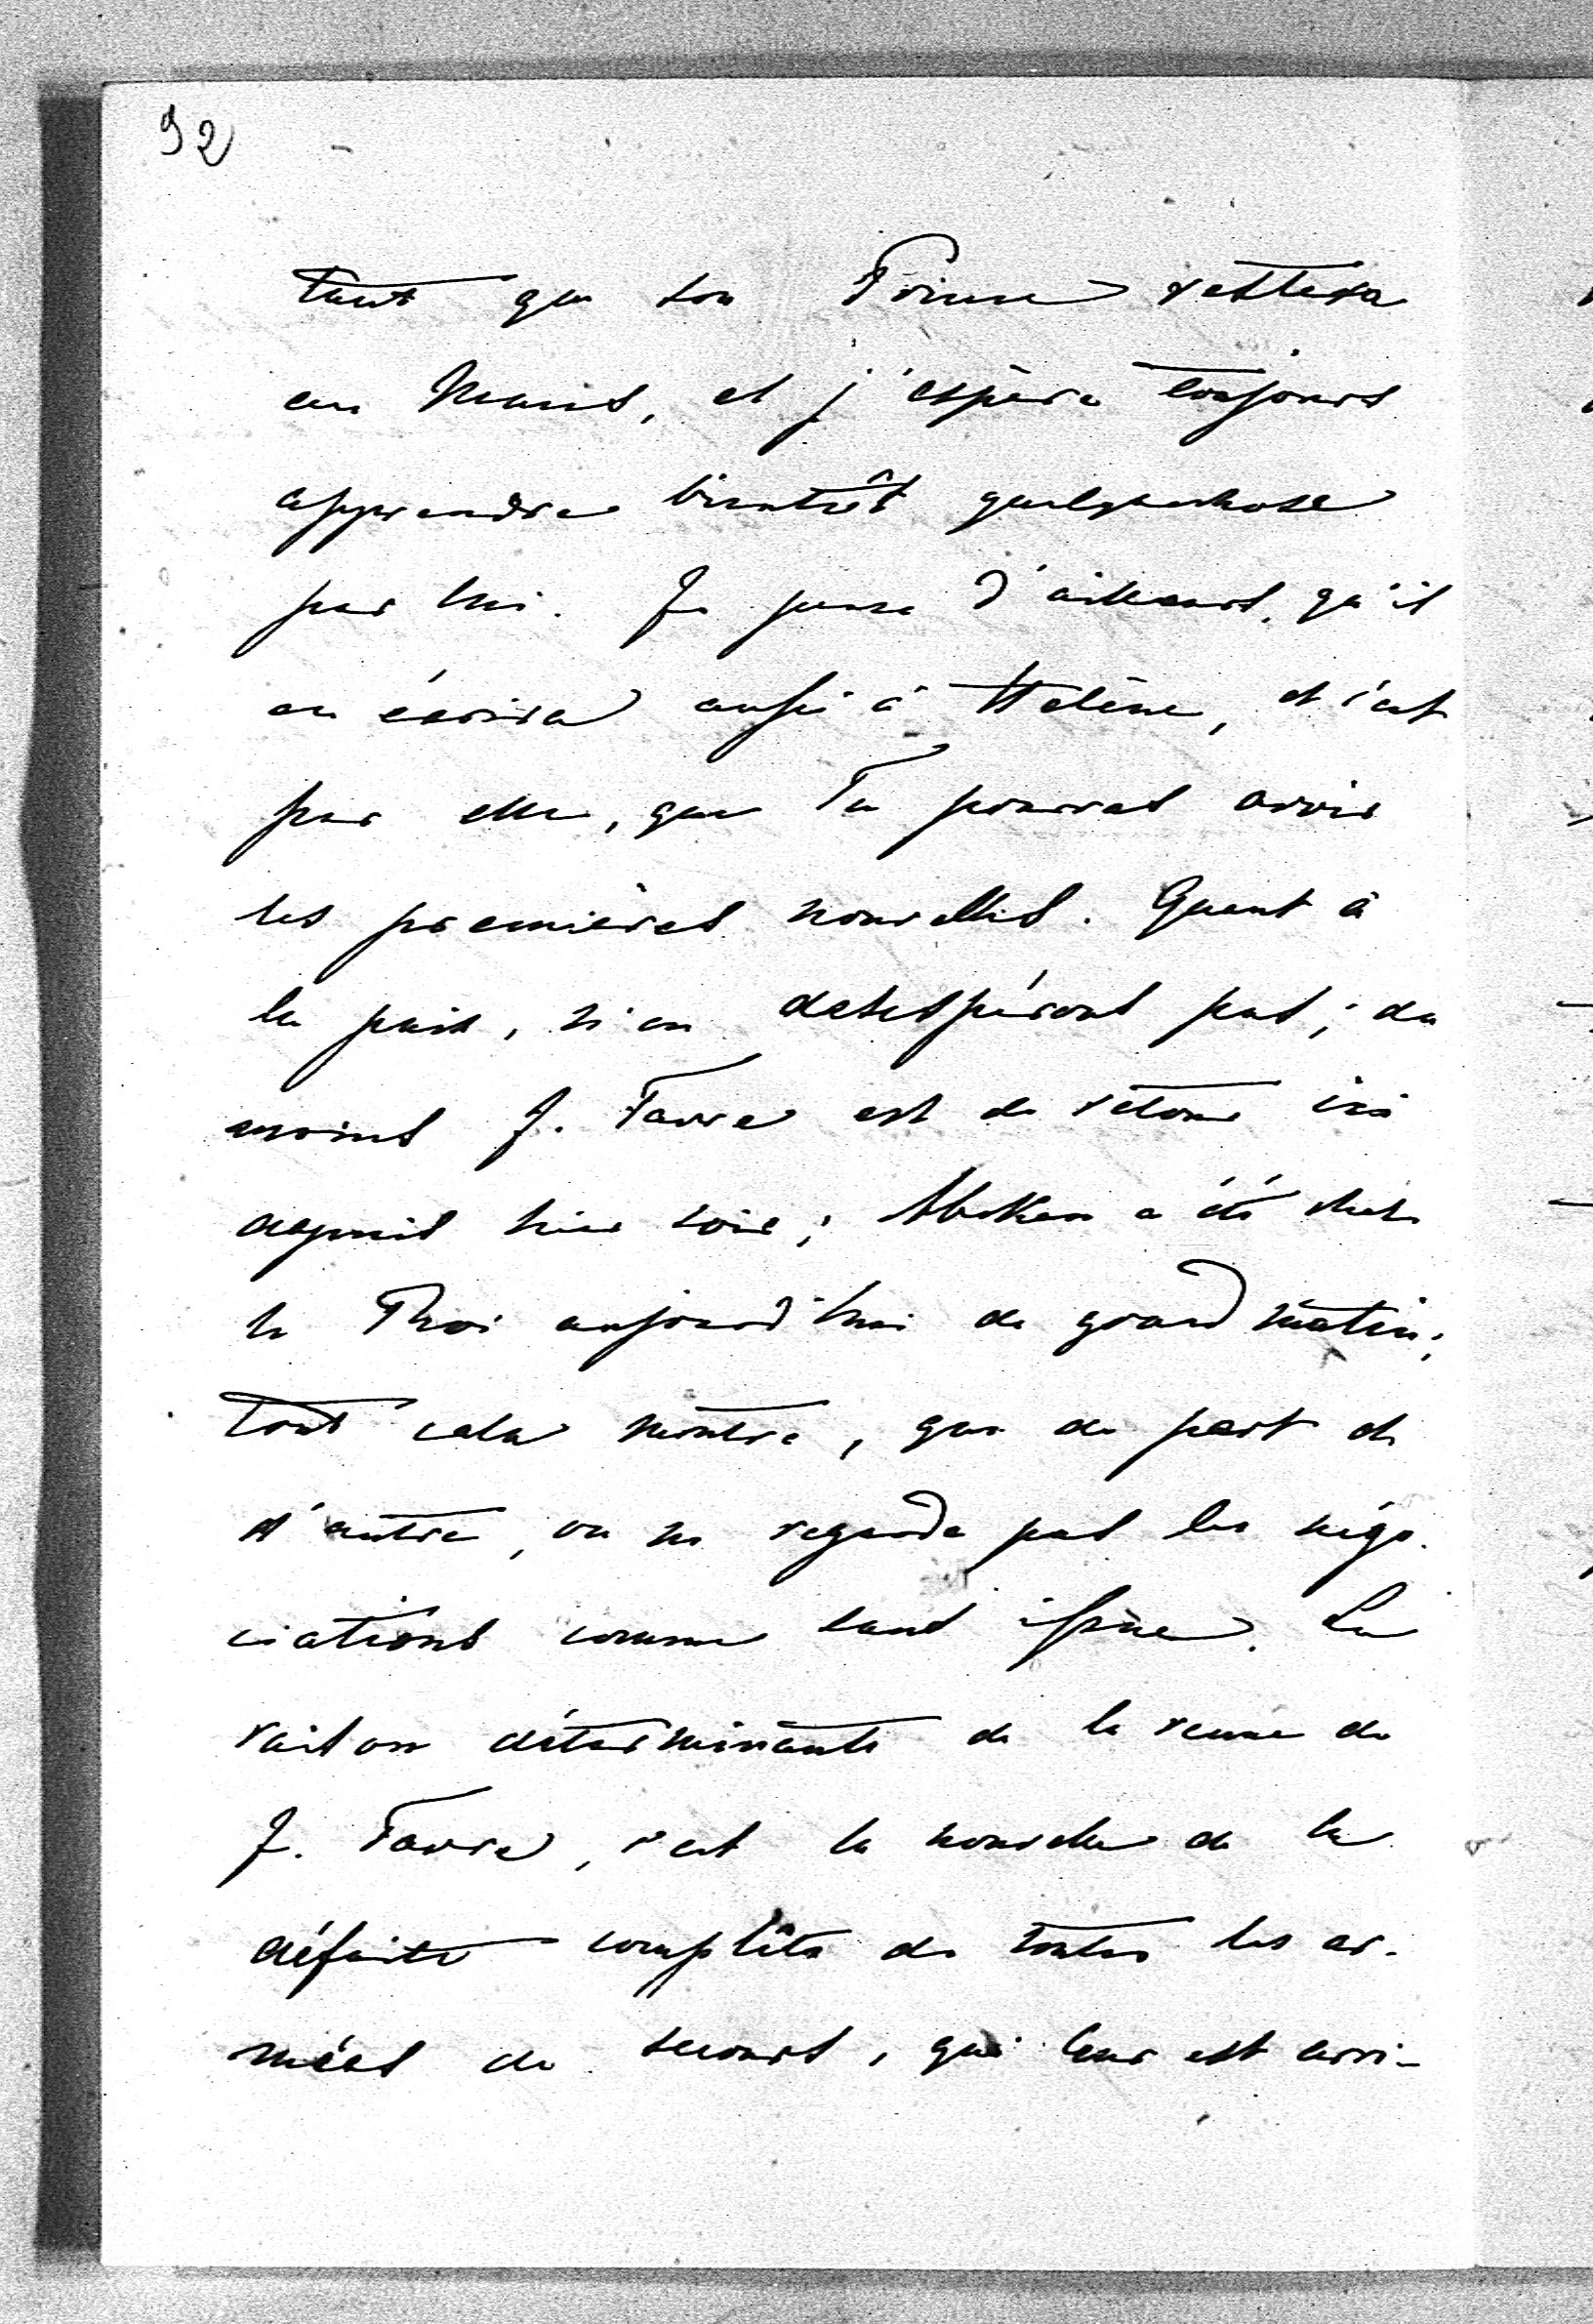 92
tant que son Prince restera
au Mans, et j'espère toujours
apprendre bientôt quelquechose
par lui. Je pense d'ailleurs, qu'il
en écrira aussi à Helène, et c'est
par elle, que Tu pourras avoir
les premières nouvelles. Quant à
la paix, n'en désespérons pas; du
moins J. Favre est de retour ici
depuis hier soir; Abeken a été chez
le Roi aujourd'hui de grand matin;
tout cela montre, que de part et
d'autre, on ne regarde pas les négo-
ciations comme sans issue. La
raison déterminante de la venue de
J. Favre, c'est la nouvelle de la
défaite complète de toutes les ar-
mées de secours, qui leur est arri-